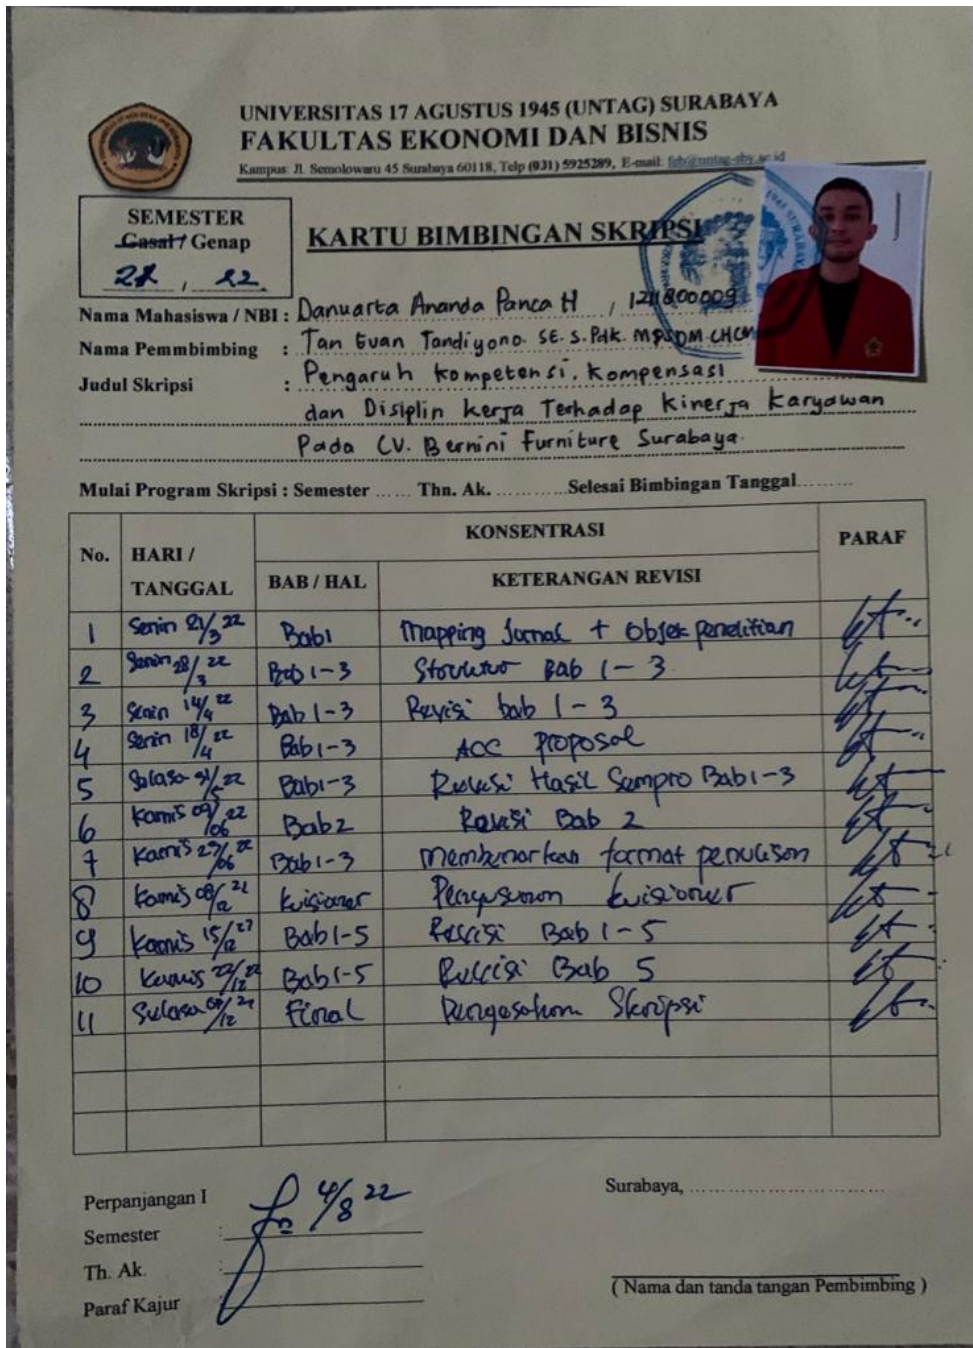 UNIVERSITAS 17 AGUSTUS 1945 (UNTAG) SURABAYA
FAKULTAS EKONOMI DAN BISNIS
Kampus: Jl. Semolowaru 45 Surabaya 60118, Telp (031) 5925289, E-mail: feb@untag-sby.ac.id
SEMESTER
Gasal / Genap
22
KARTU BIMBINGAN SKRIPSI
Nama Mahasiswa / NBI : Danuarta Ananda Panca H , 1211800009
Nama Pemmbimbing : Tan Evan Tandiyono. SE. S.Pdk. MPSDM CHCM
Judul Skripsi : Pengaruh Kompetensi. Kompensasi
dan Disiplin kerja Terhadap Kinerja Karyawan
Pada CV. Bernini Furniture Surabaya.
Mulai Program Skripsi : Semester ...... Thn. Ak. ............ Selesai Bimbingan Tanggal.........
No. HARI / TANGGAL KONSENTRASI PARAF
BAB / HAL KETERANGAN REVISI
1 Senin 21/3 22 Bab 1 Mapping Jurnal + Objek penelitian
2 Senin 28/3 22 Bab 1-3 Struktur Bab 1-3
3 Senin 14/4 22 Bab 1-3 Revisi bab 1-3
4 Senin 18/4 22 Bab 1-3 ACC Proposal
5 Selasa 22 Bab 1-3 Revisi Hasil Sempro Bab 1-3
6 Kamis 09/06 22 Bab 2 Revisi Bab 2
7 Kamis 06 22 Bab 1-3 Membenarkan format penulisan
8 Kamis 08/12 Kuisioner Penyusunan kuisioner
9 Kamis 15/12 Bab 1-5 Revisi Bab 1-5
10 Kamis 22/12 22 Bab 1-5 Revisi Bab 5
11 Selasa Final Pengesahan Skripsi
Perpanjangan I 4/8 22
Semester :
Th. Ak.
Paraf Kajur
Surabaya, ..............................
( Nama dan tanda tangan Pembimbing )